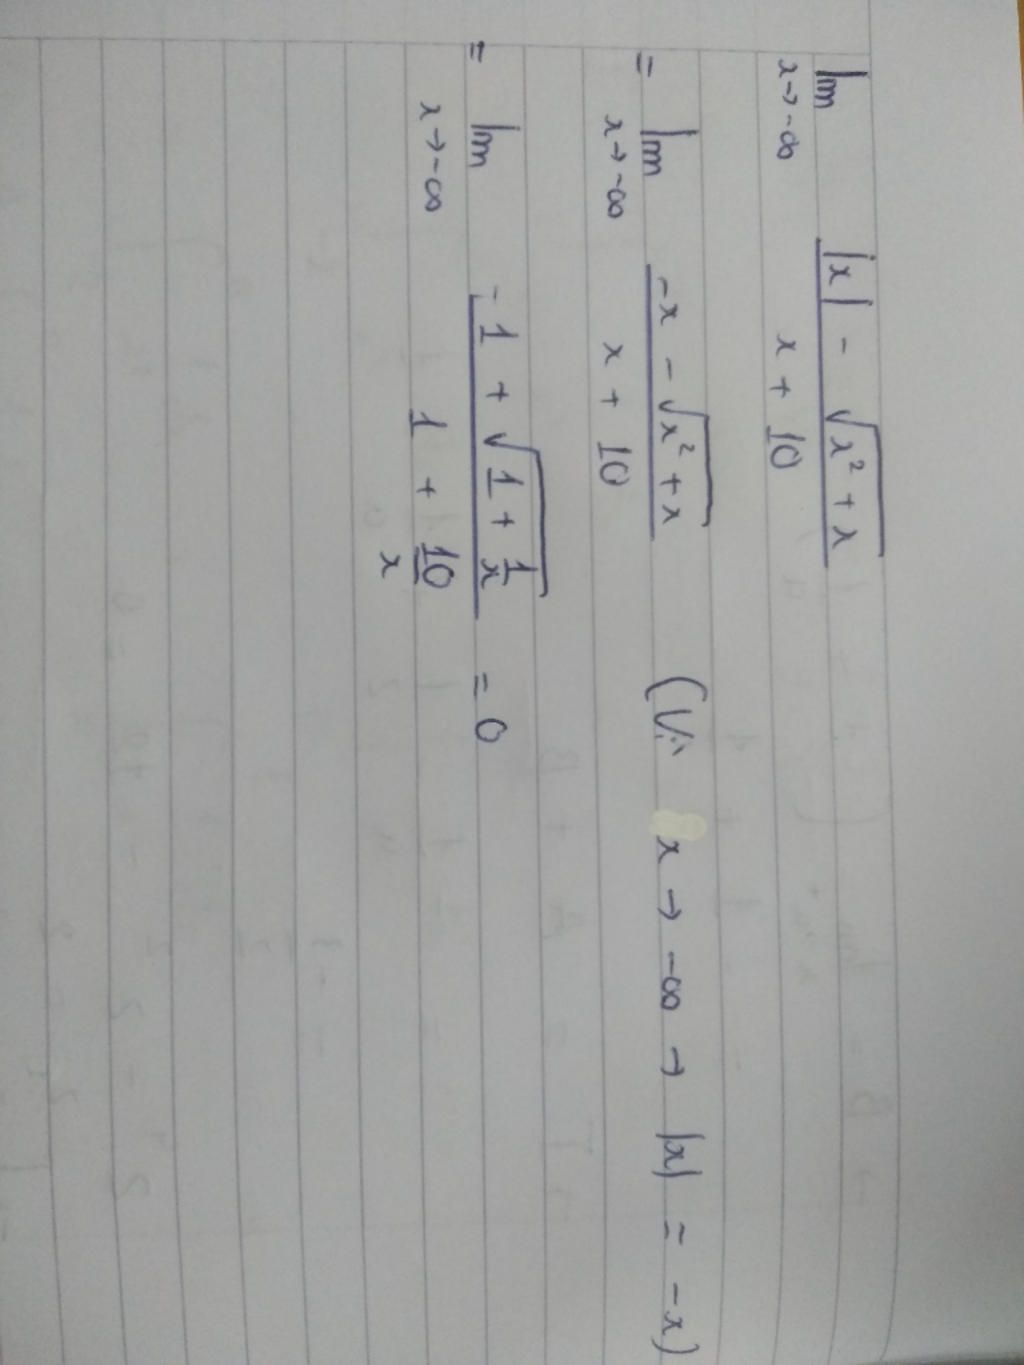 lim x→-∞ (|x| - √(x² + x)) / (x + 10)
= lim x→-∞ (-x - √(x² + x)) / (x + 10) (Vì x → -∞ → |x| = -x)
= lim x→-∞ (-1 + √(1 + 1/x)) / (1 + 10/x) = 0